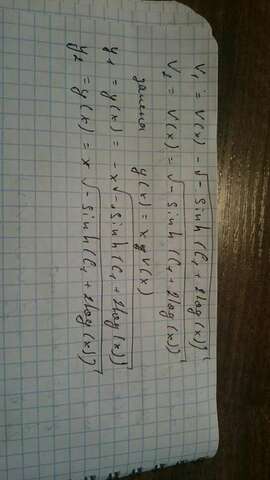 V₁ = V(x) - √-Sinh(C₁ + 2log(x))
V₂ = V(x) = √-Sinh(C₁ + 2log(x))
замена y(x) = x v(x)
y₁ = y(x) = -x√-Sinh(C₁ + 2log(x))
y₂ = y(x) = x√-Sinh(C₁ + 2log(x))